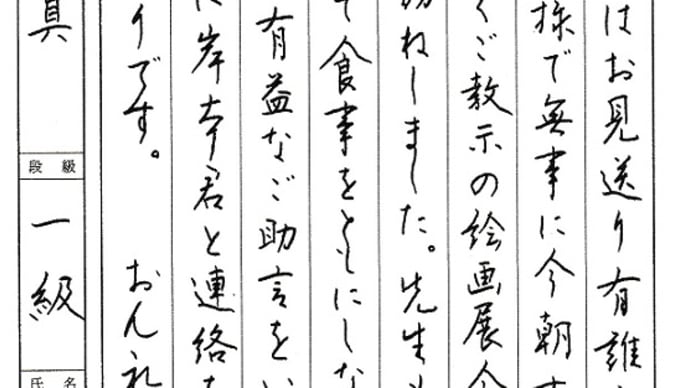 はお見送り有難
様で無事に今朝
くご教示の絵画展会
ねしました。先生
食事をともにしな
有益なご助言をい
に岸本君と連絡
りです。 おん礼
段級
一級
氏名